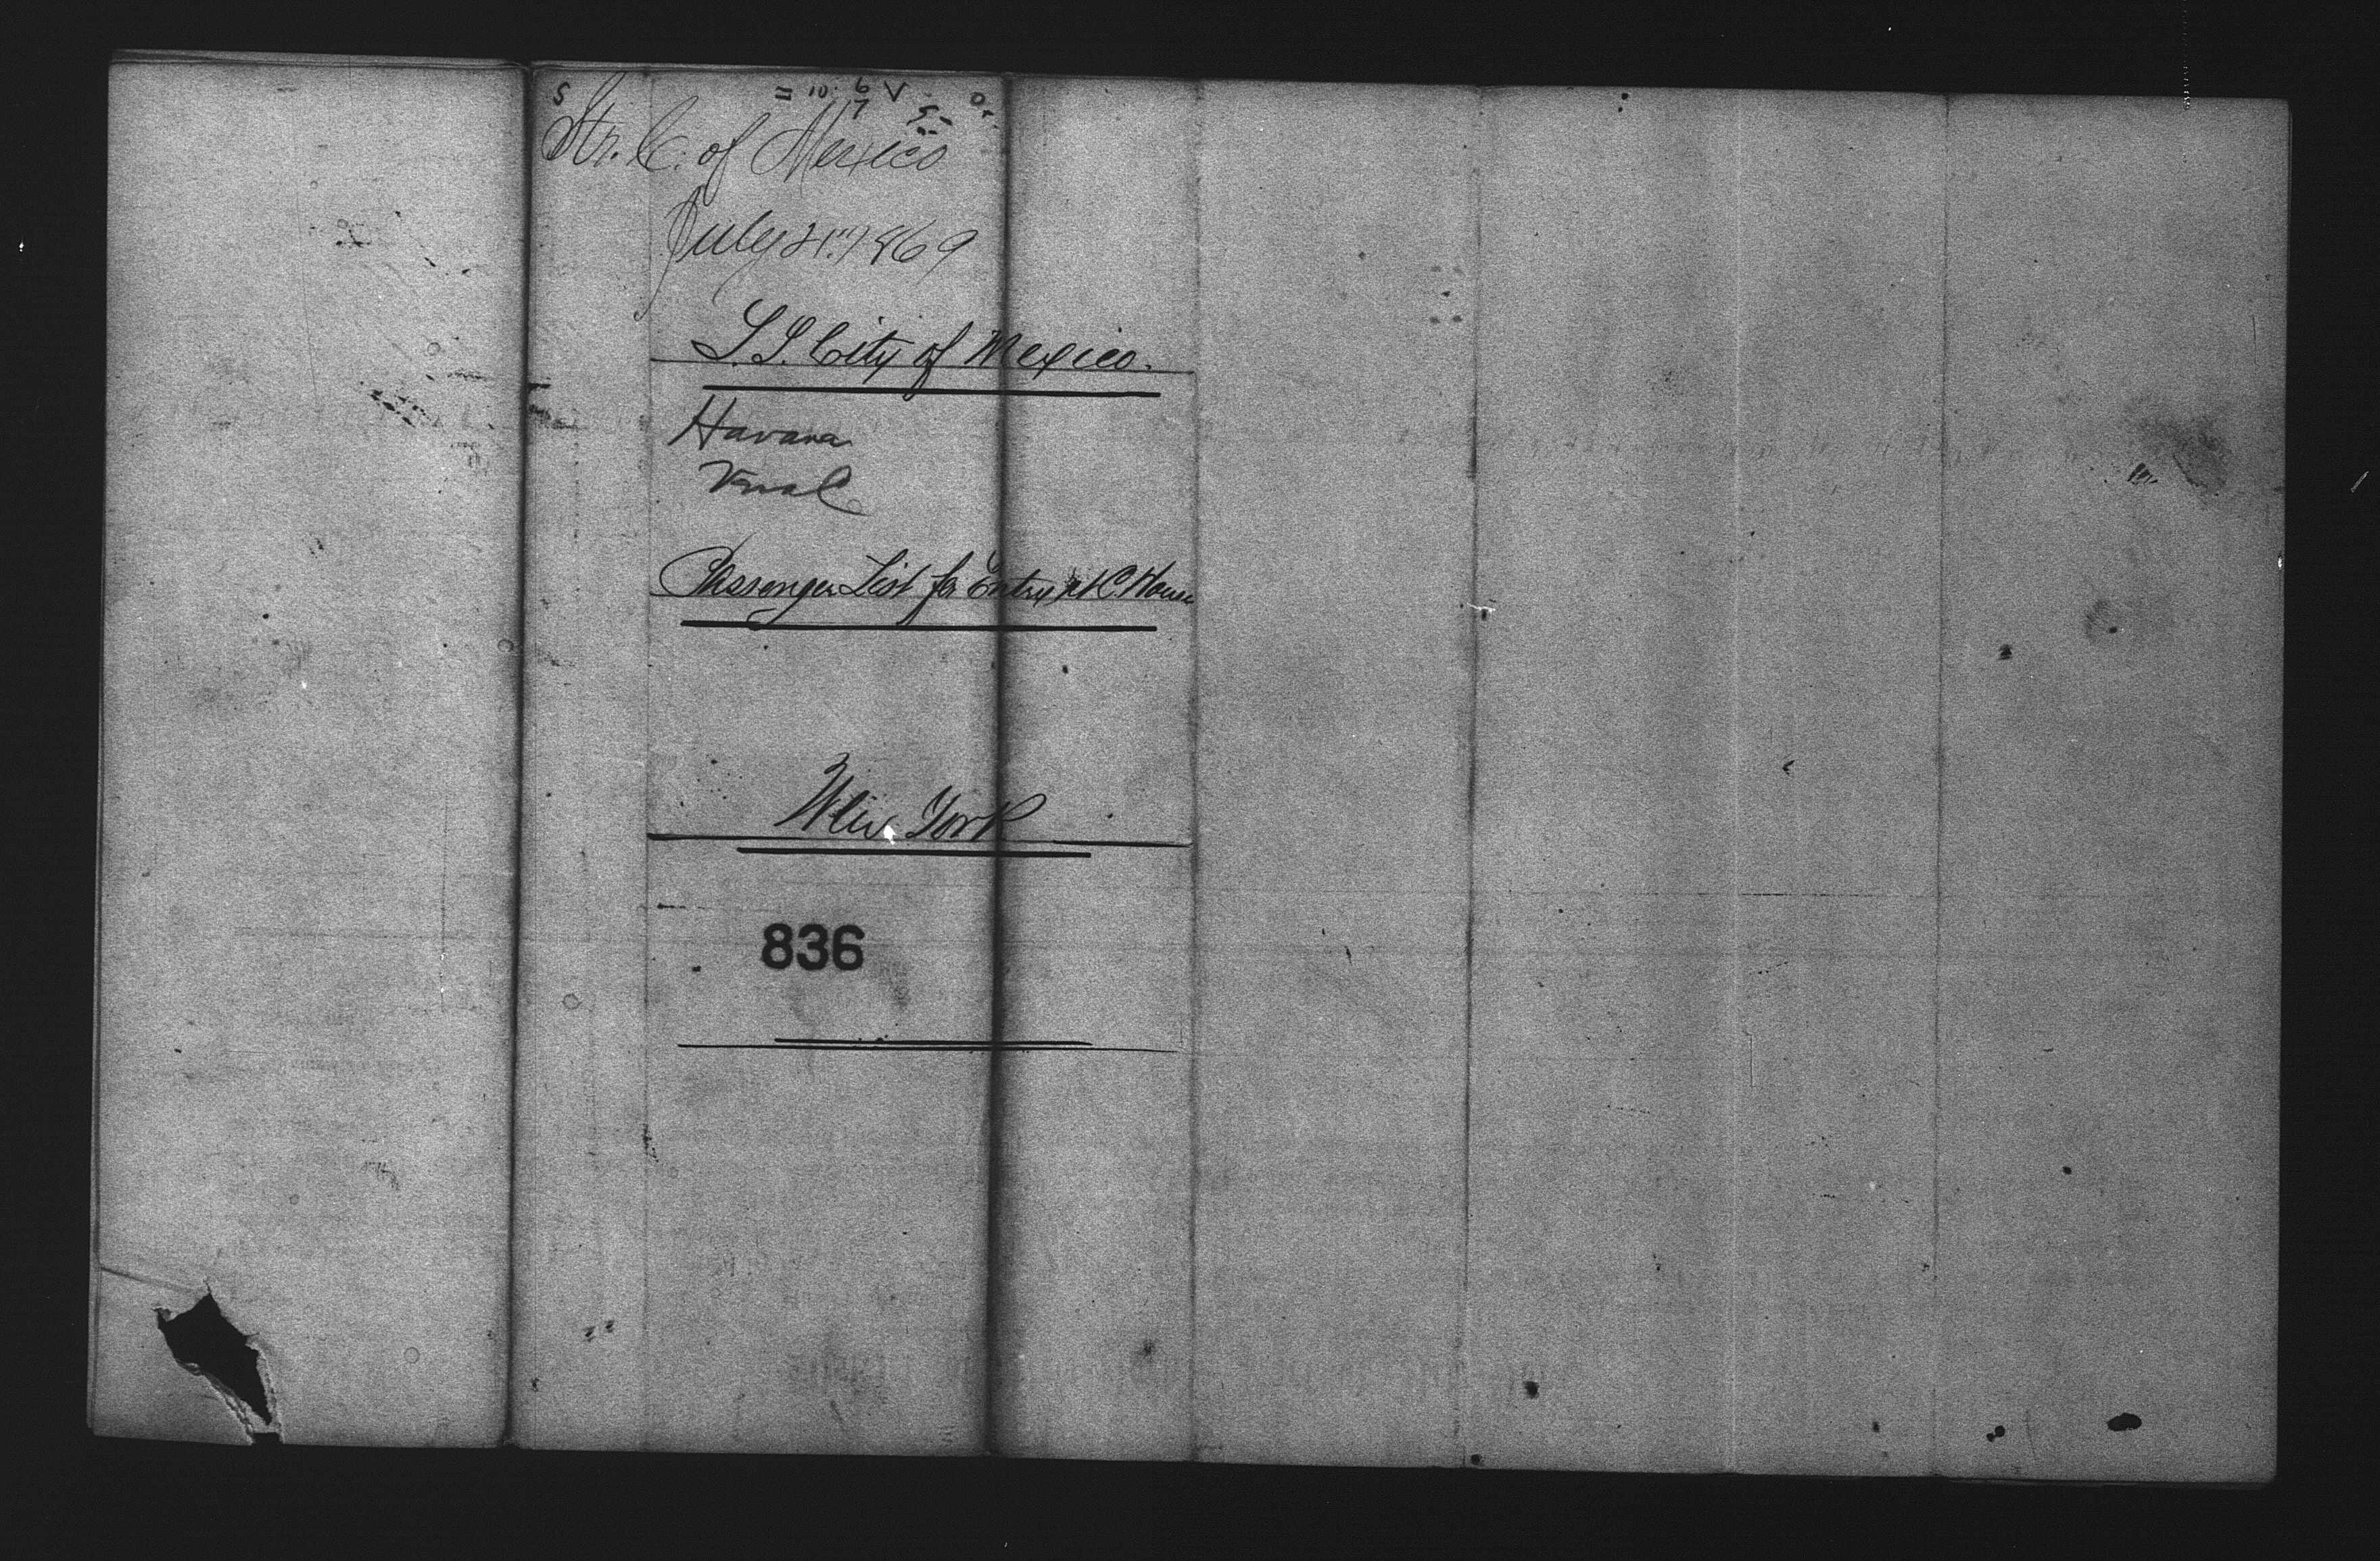 Str. C. of Mexico
July 21" 1869
S.S. City of Mexico.
Havana
Passenger List for Entry at C. House
New York
836